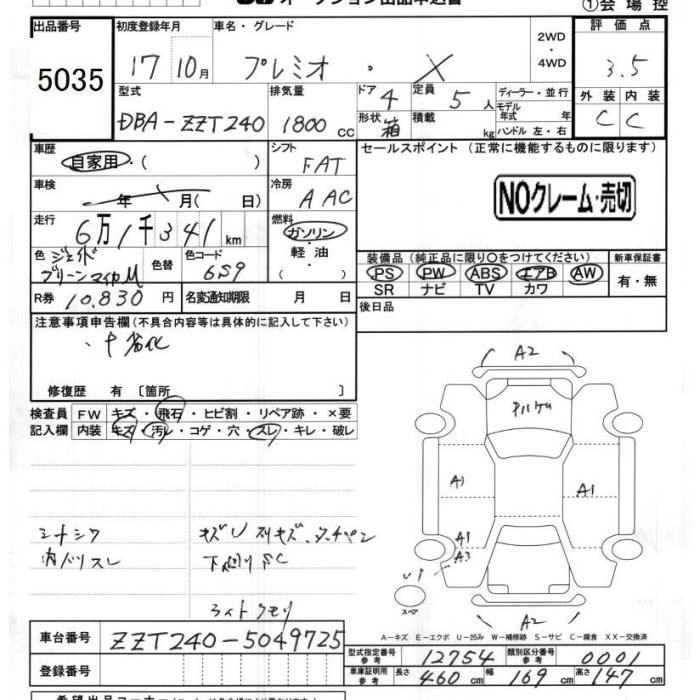 ①会場控
出品番号 初度登録年月 車名・グレード 2WD・4WD 評価点
5035 17 10月 プレミオ・X 3.5
型式 排気量 ドア 4 定員 5人 ディーラー・並行 外装 内装
DBA-ZZT240 1800cc 形状 箱 積載 kg モデル年式 年 ハンドル 左・右 C C
車歴 シフト セールスポイント(正常に機能するものに限ります)
自家用・( ) FAT
車検 冷房 NOクレーム・売切
年 月( 日) AAC
走行 燃料
6万1千341km ガソリン・軽油・( )
色 色替 色コード 装備品(純正品に限り〇をつけてください) 新車保証書
ジェイドグリーンマイカM 6S9 PS PW ABS エアB AW 有・無
SR ナビ TV カワ
R券 10,830円 名変通知期限 月 日 後日品
注意事項申告欄(不具合内容等は具体的に記入して下さい)
修復歴 有〔箇所 〕
検査員 FW キズ・飛石・ヒビ割・リペア跡・×要
記入欄 内装 キズ・汚レ・コゲ・穴・スレ・キレ・破レ
A2
A1
A1
A1
A3
U1
スペア
A2
シートシワ
内ハリスレ
ライトクモリ
A-キズ E-エクボ U-凹み W-補修跡 S-サビ C-腐食 XX-交換済
車台番号 ZZT240-5049725
型式指定番号 参考 12754 類別区分番号 参考 0001
登録番号 車庫証明用 参考 長さ 460cm 幅 169cm 高さ 147cm